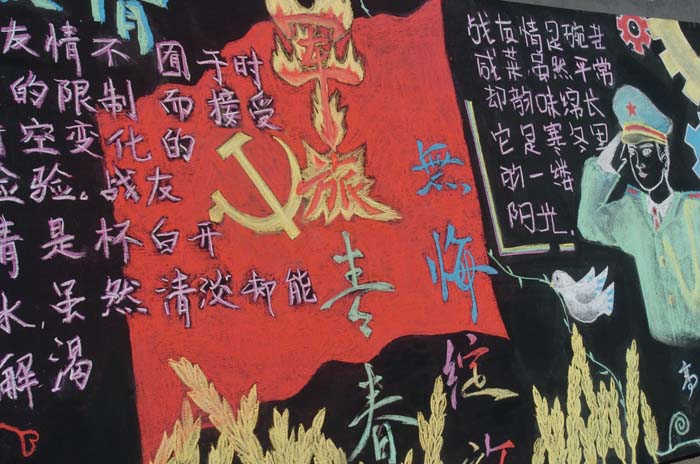 情
友情不囿于时
的限制而接受
空变化的
检验。战友
情是杯白开
水,虽然清淡却能
解渴
军旅
青春
無悔
绽放
战友情是碗苦
咸菜,虽然平常
却韵味绵长
它是寒冬里
的一缕
阳光.